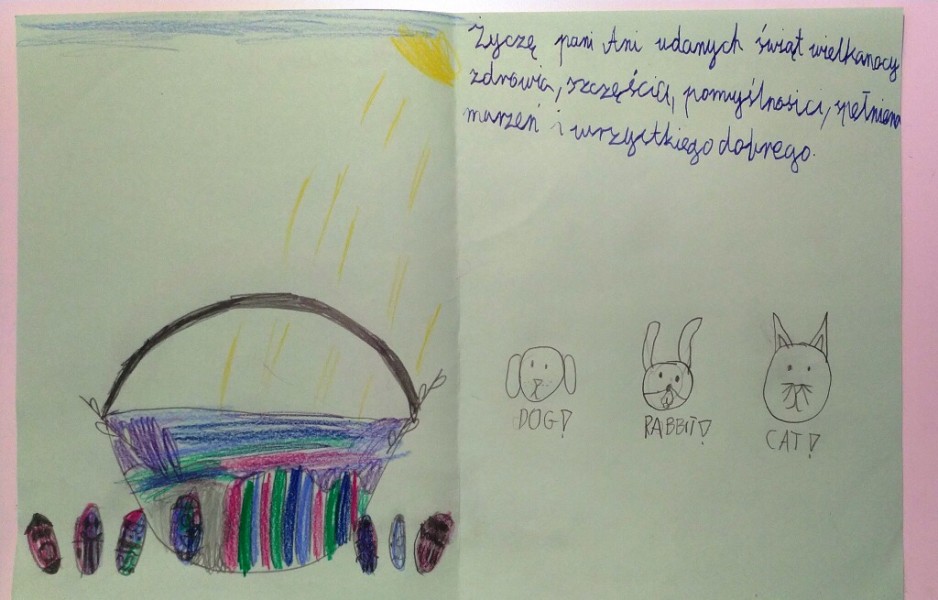 Życzę pani Ani udanych świąt wielkanocy
zdrowia, szczęścia, pomyślnosici, spełniena
marzeń i wszystkiego dobrego.
DOG! RABBIT! CAT!